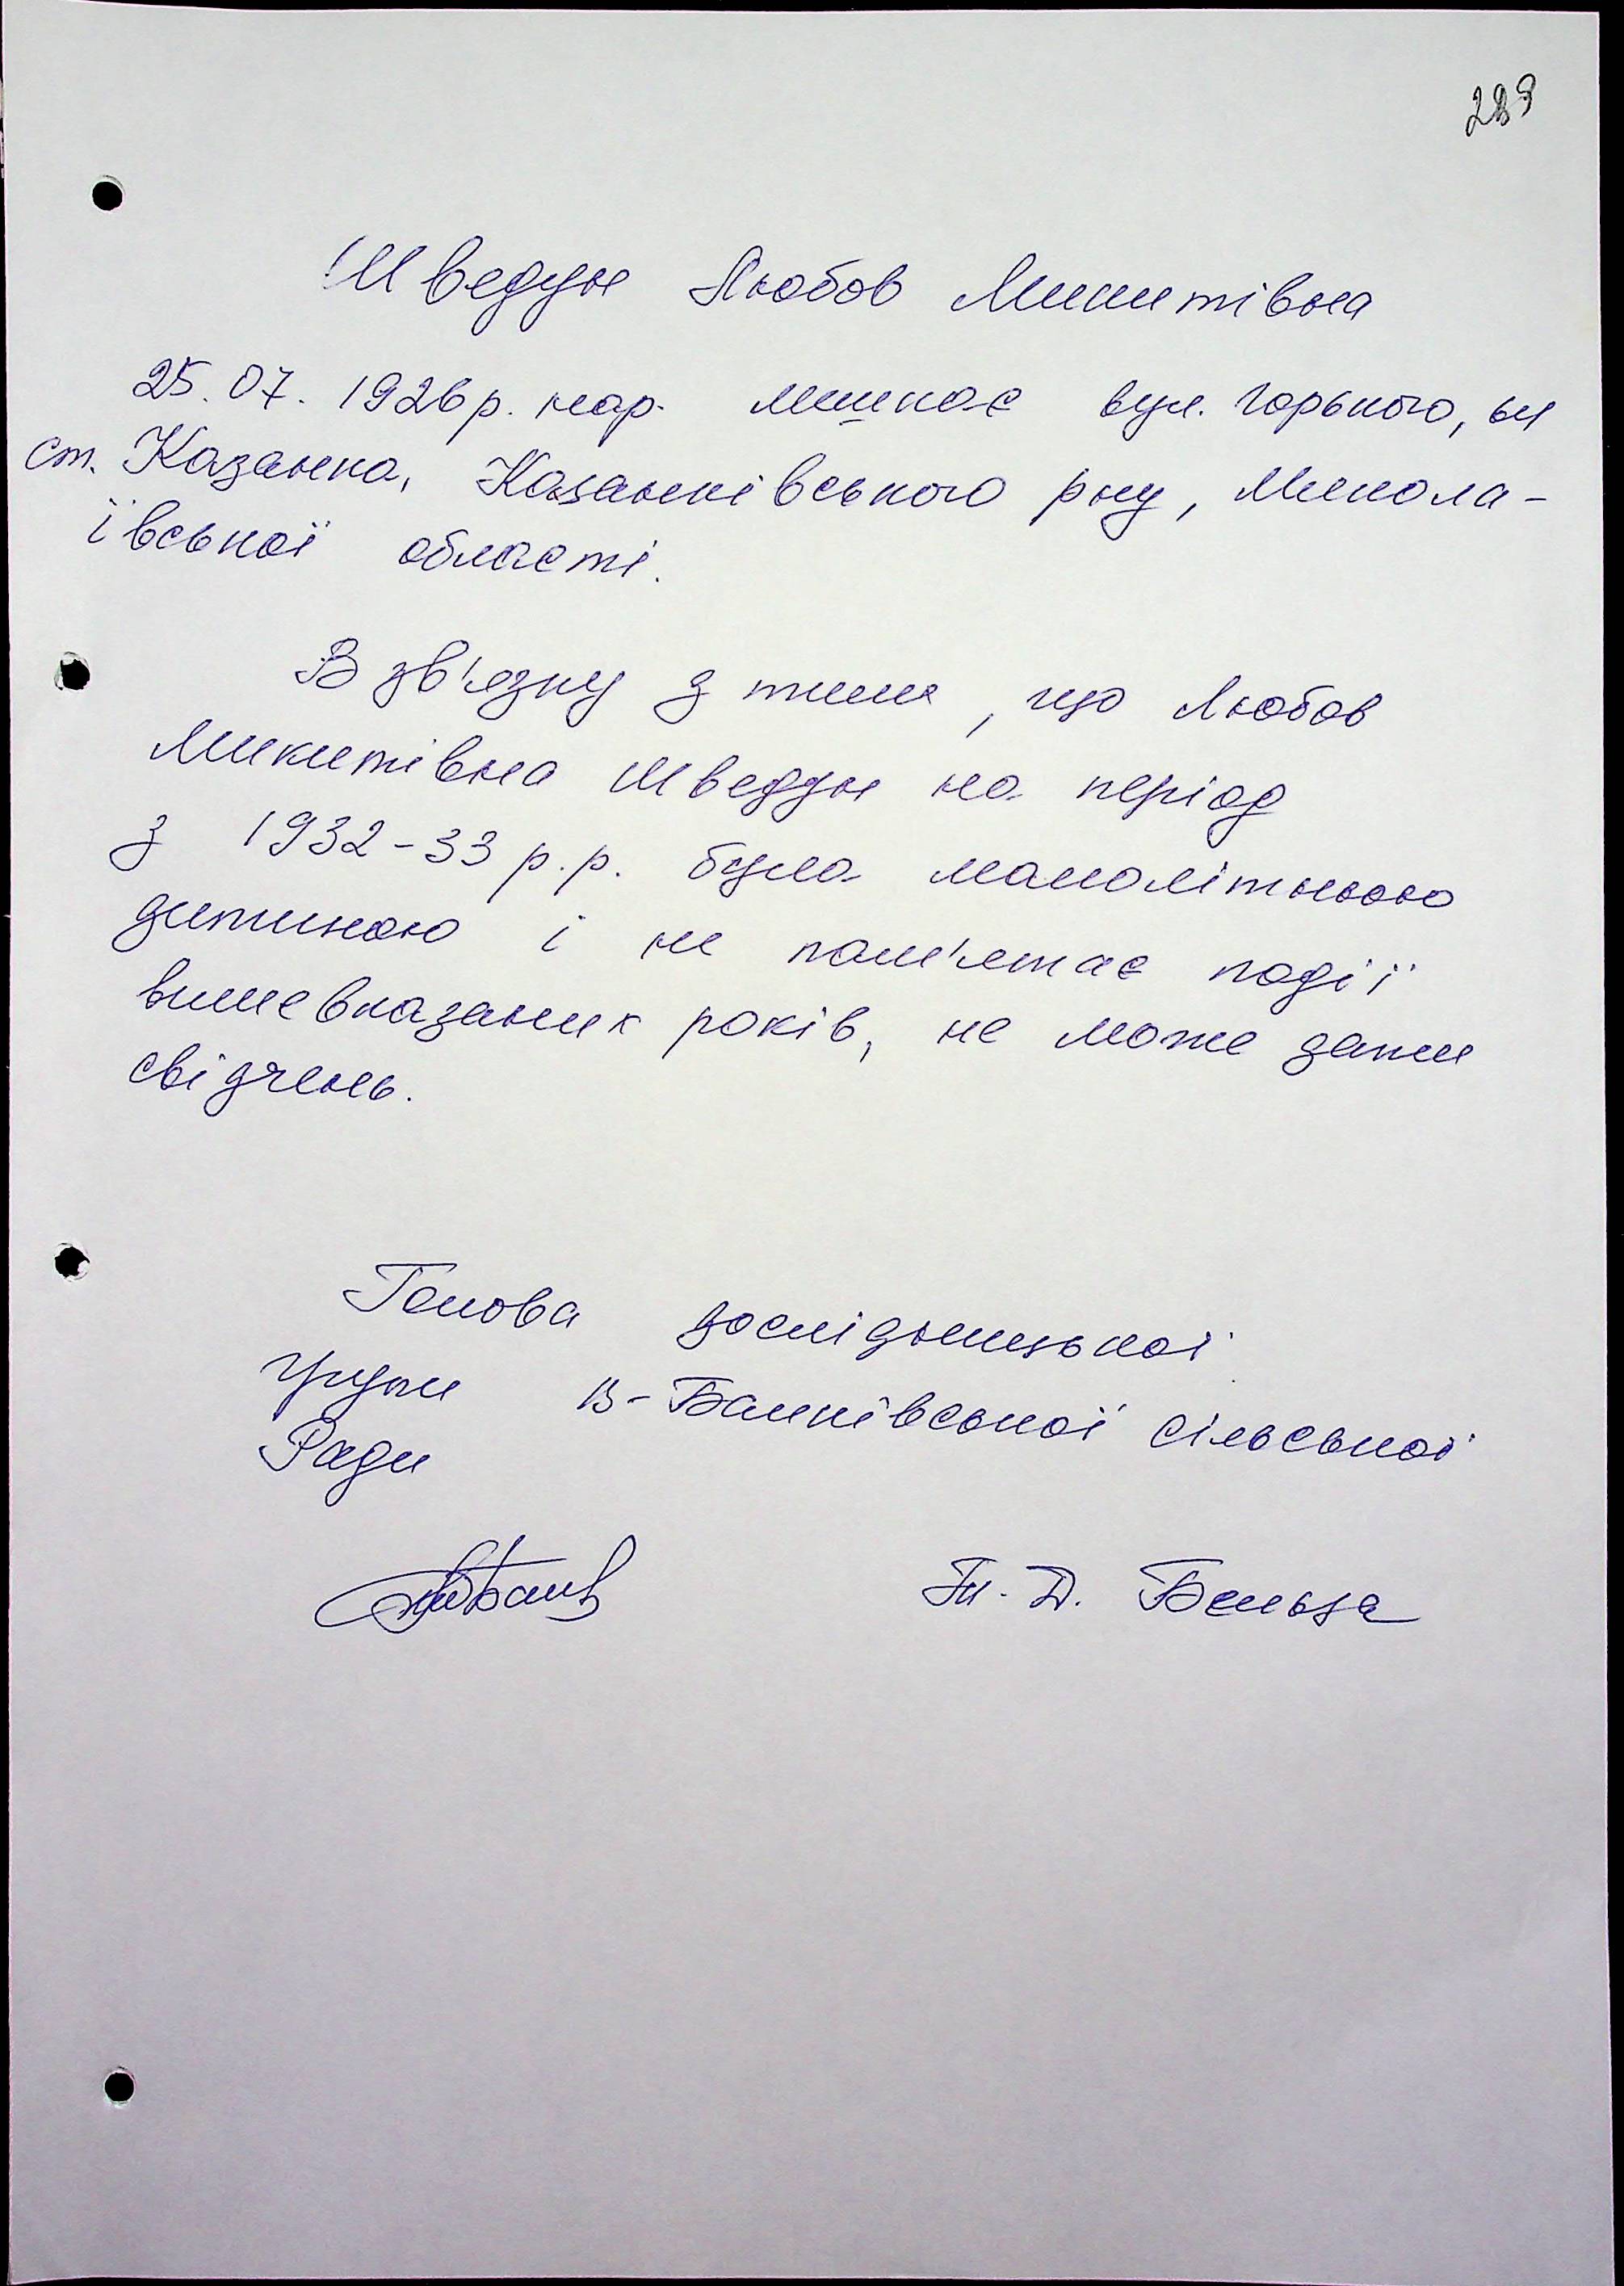 289
Шведун Любов Микитівна
25.07.1926р. нар. мешкає вул. Горького,
ст. Казанка, Казанківського р-ну, Микола-
ївської області.
В зв'язку з тим, що Любов
Микитівна Шведун на період
з 1932-33 р.р. була малолітньою
дитиною і не пам'ятає події
вишевказаних років, не може дати
свідчень.
Голова дослідницької
групи В-Балківської сільської
Ради
Т. Д. Бельза